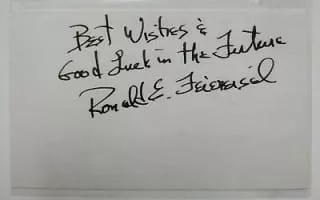 Best Wishes &
Good Luck in the Future
Ronald E.